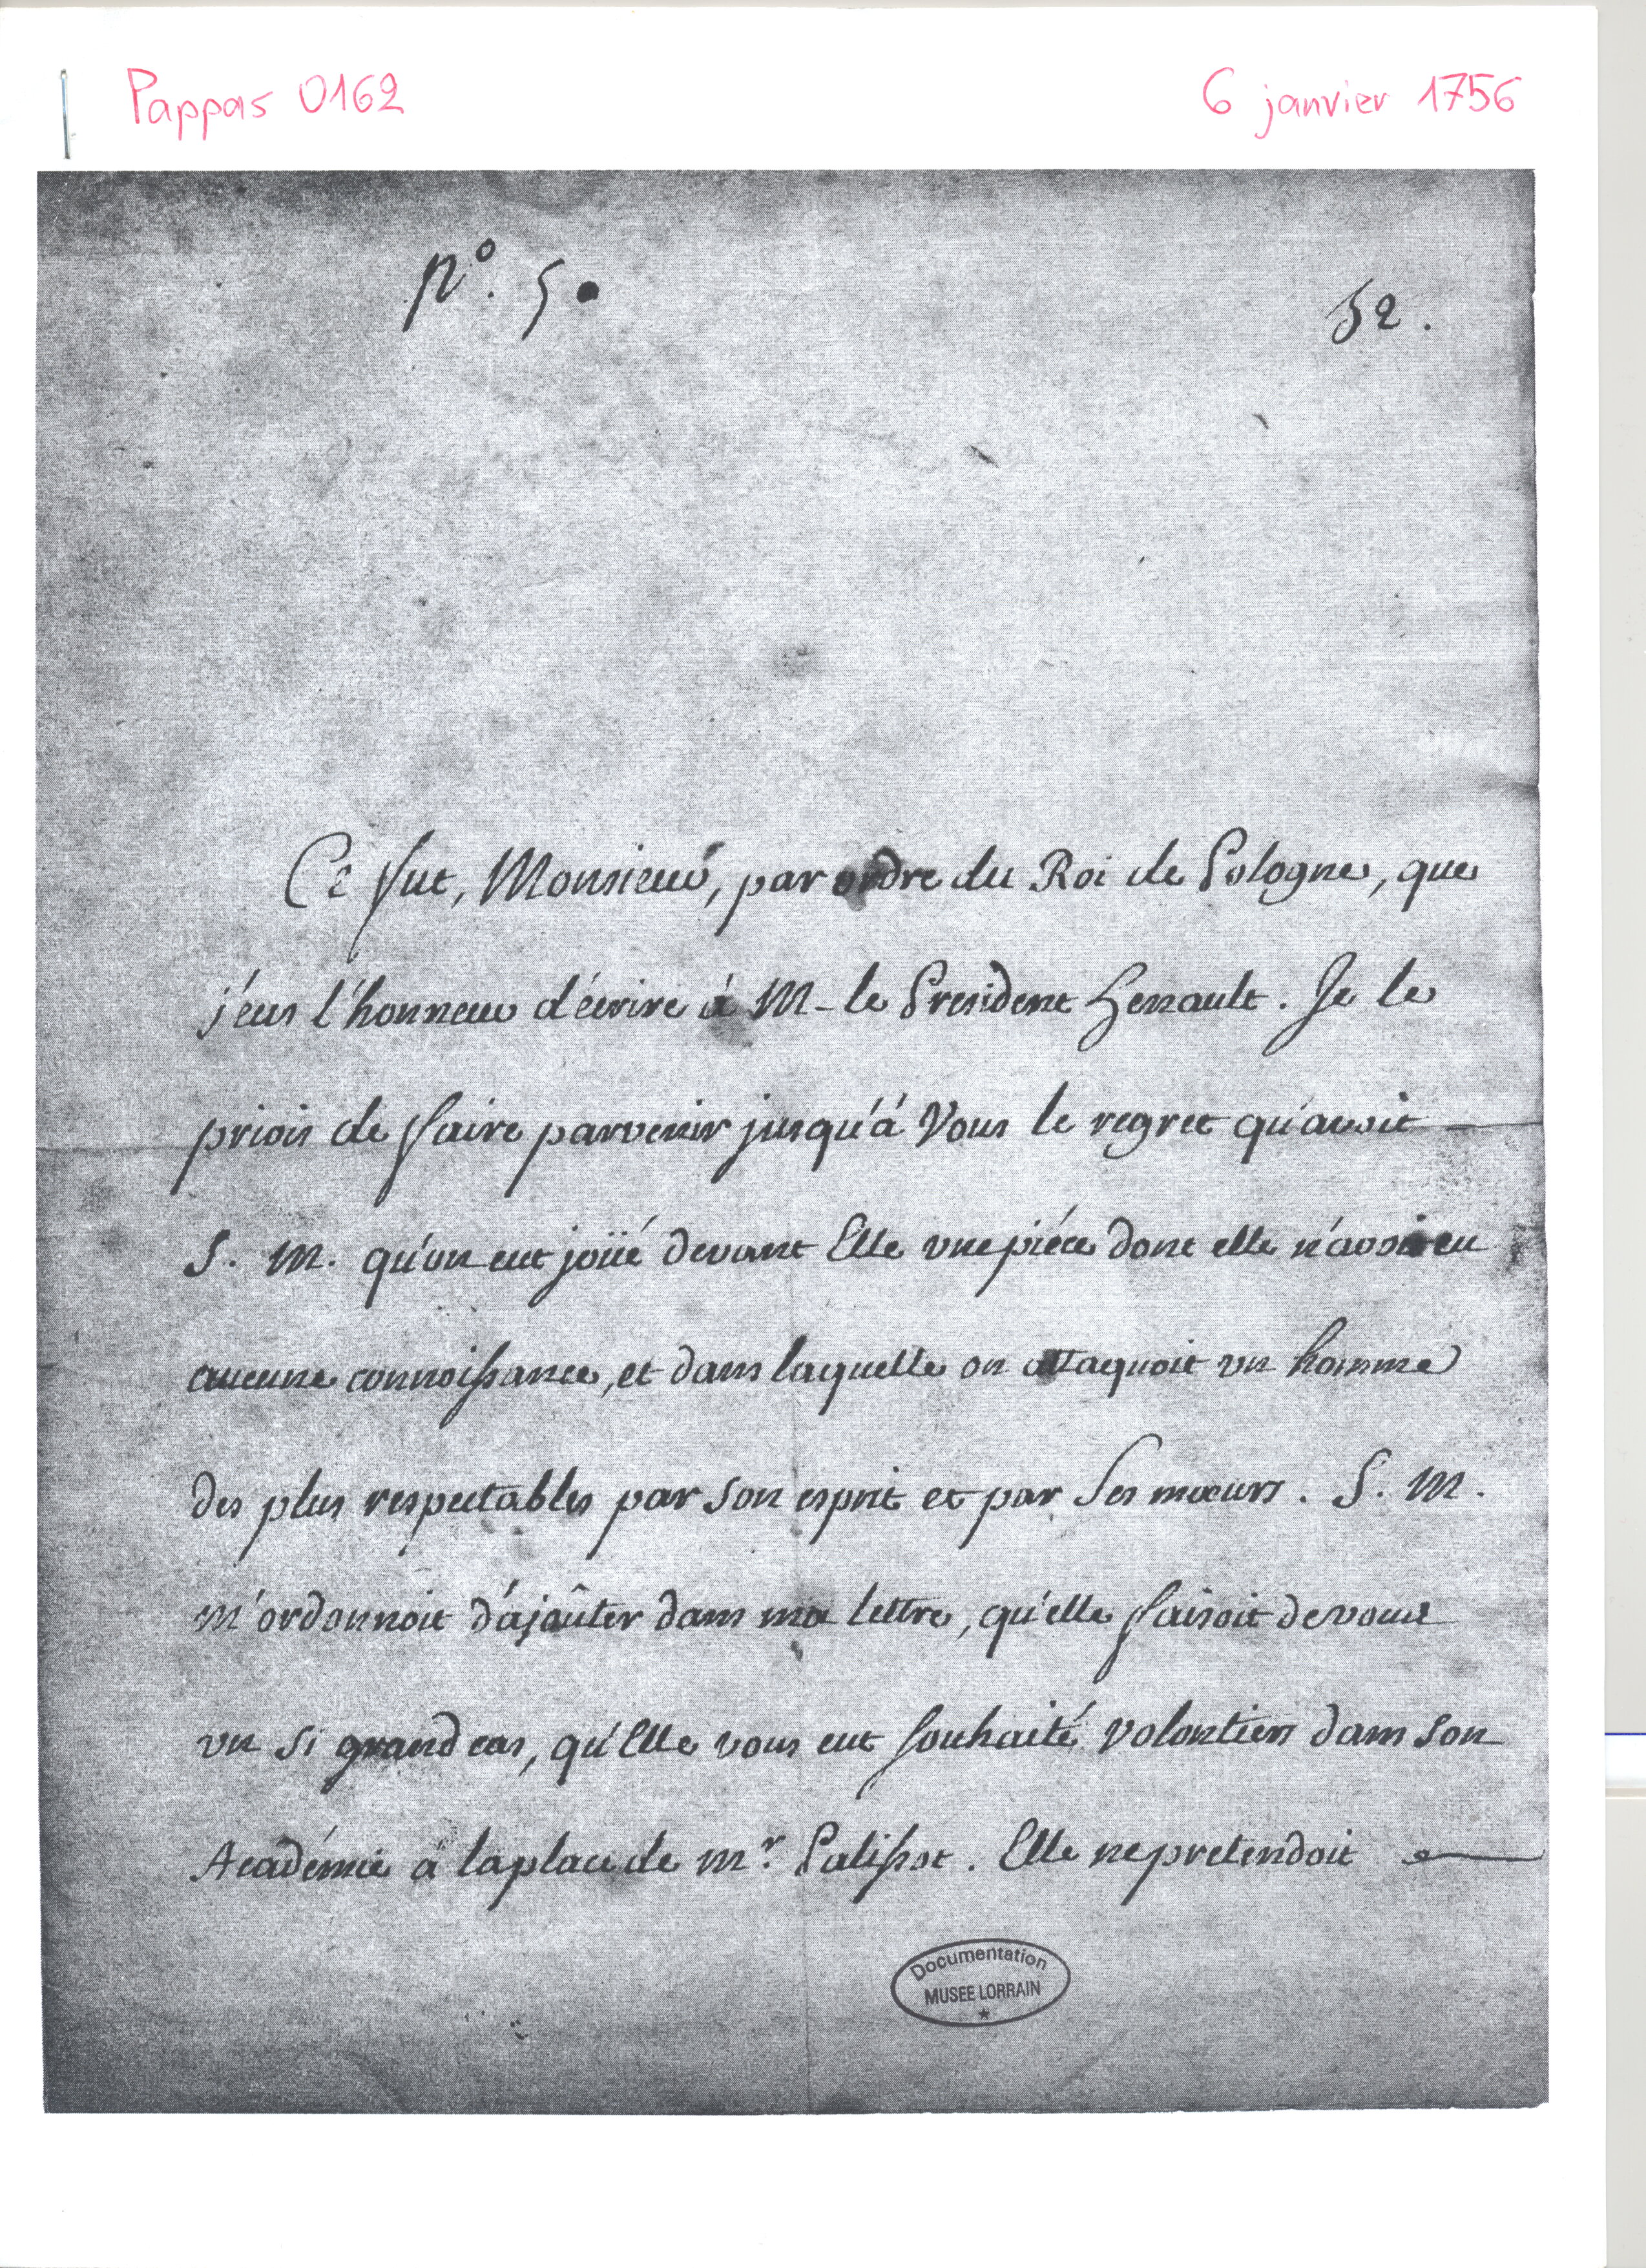 Pappas 0162
6 janvier 1756
N.º 5
52.
Ce fut, Monsieur, par ordre du Roi de Pologne, que
j'eus l'honneur d'écrire à M- le President Henault. Je le
priois de faire parvenir jusqu'à Vous le regret qu'avoit
S. M. qu'on eut joüé devant Elle une piéce dont elle n'avoit eu
aucune connoissance, et dans laquelle on attaquoit un homme
des plus respectables par son esprit et par ses mœurs. S. M.
m'ordonnoit d'ajoûter dans ma lettre, qu'elle faisoit de vous
un si grand cas, qu'Elle vous eut souhaité volontiers dans son
Académie à la place de Mr. Palissot. Elle ne pretendoit
Documentation
MUSEE LORRAIN